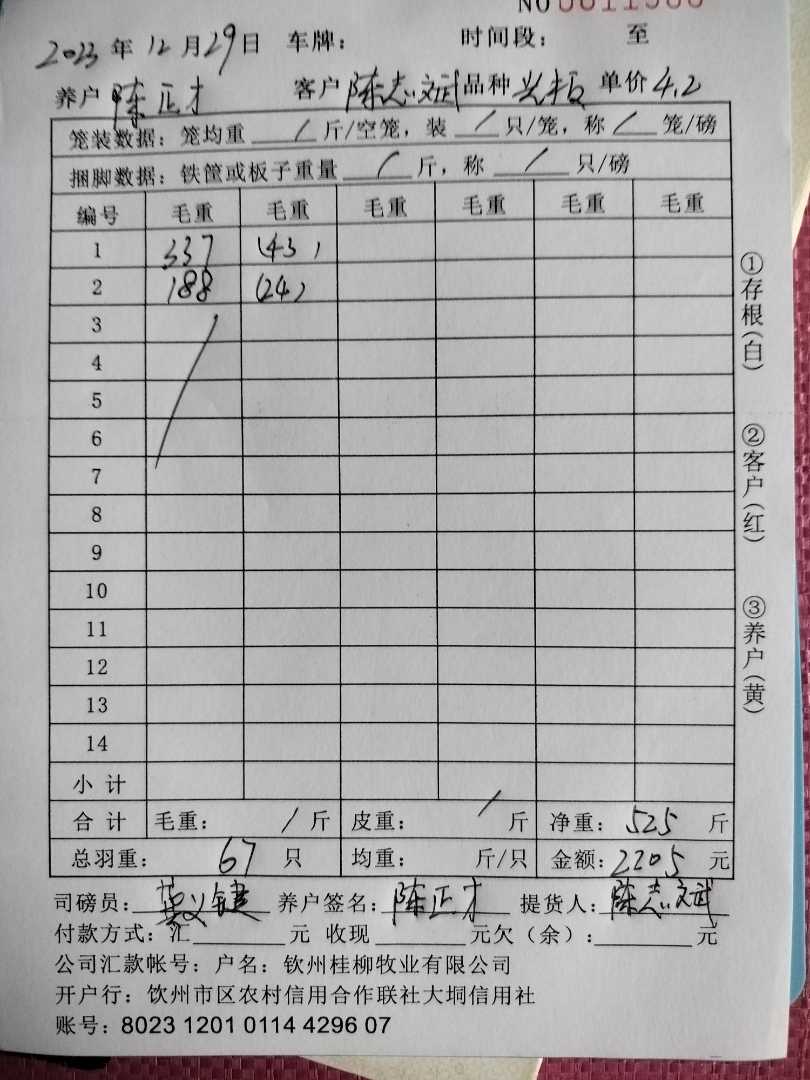 2023年12月29日 车牌： 时间段： 至
养户 陈正才 客户 陈志斌 品种 单价 4.2
笼装数据：笼均重 / 斤/空笼，装 / 只/笼，称 / 笼/磅
捆脚数据：铁筐或板子重量 / 斤，称 / 只/磅
编号 毛重 毛重 毛重 毛重 毛重 毛重
1 337 (43)
2 188 (24)
3
4
5
6
7
8
9
10
11
12
13
14
小计
合计 毛重： / 斤 皮重： / 斤 净重：525 斤
总羽重： 67 只 均重： 斤/只 金额：2205 元
司磅员： 养户签名：陈正才 提货人：陈志斌
付款方式：汇 元 收现 元欠（余）： 元
公司汇款帐号：户名：钦州桂柳牧业有限公司
开户行：饮州市区农村信用合作联社大垌信用社
账号：8023 1201 0114 4296 07
①存根（白）
②客户（红）
③养户（黄）